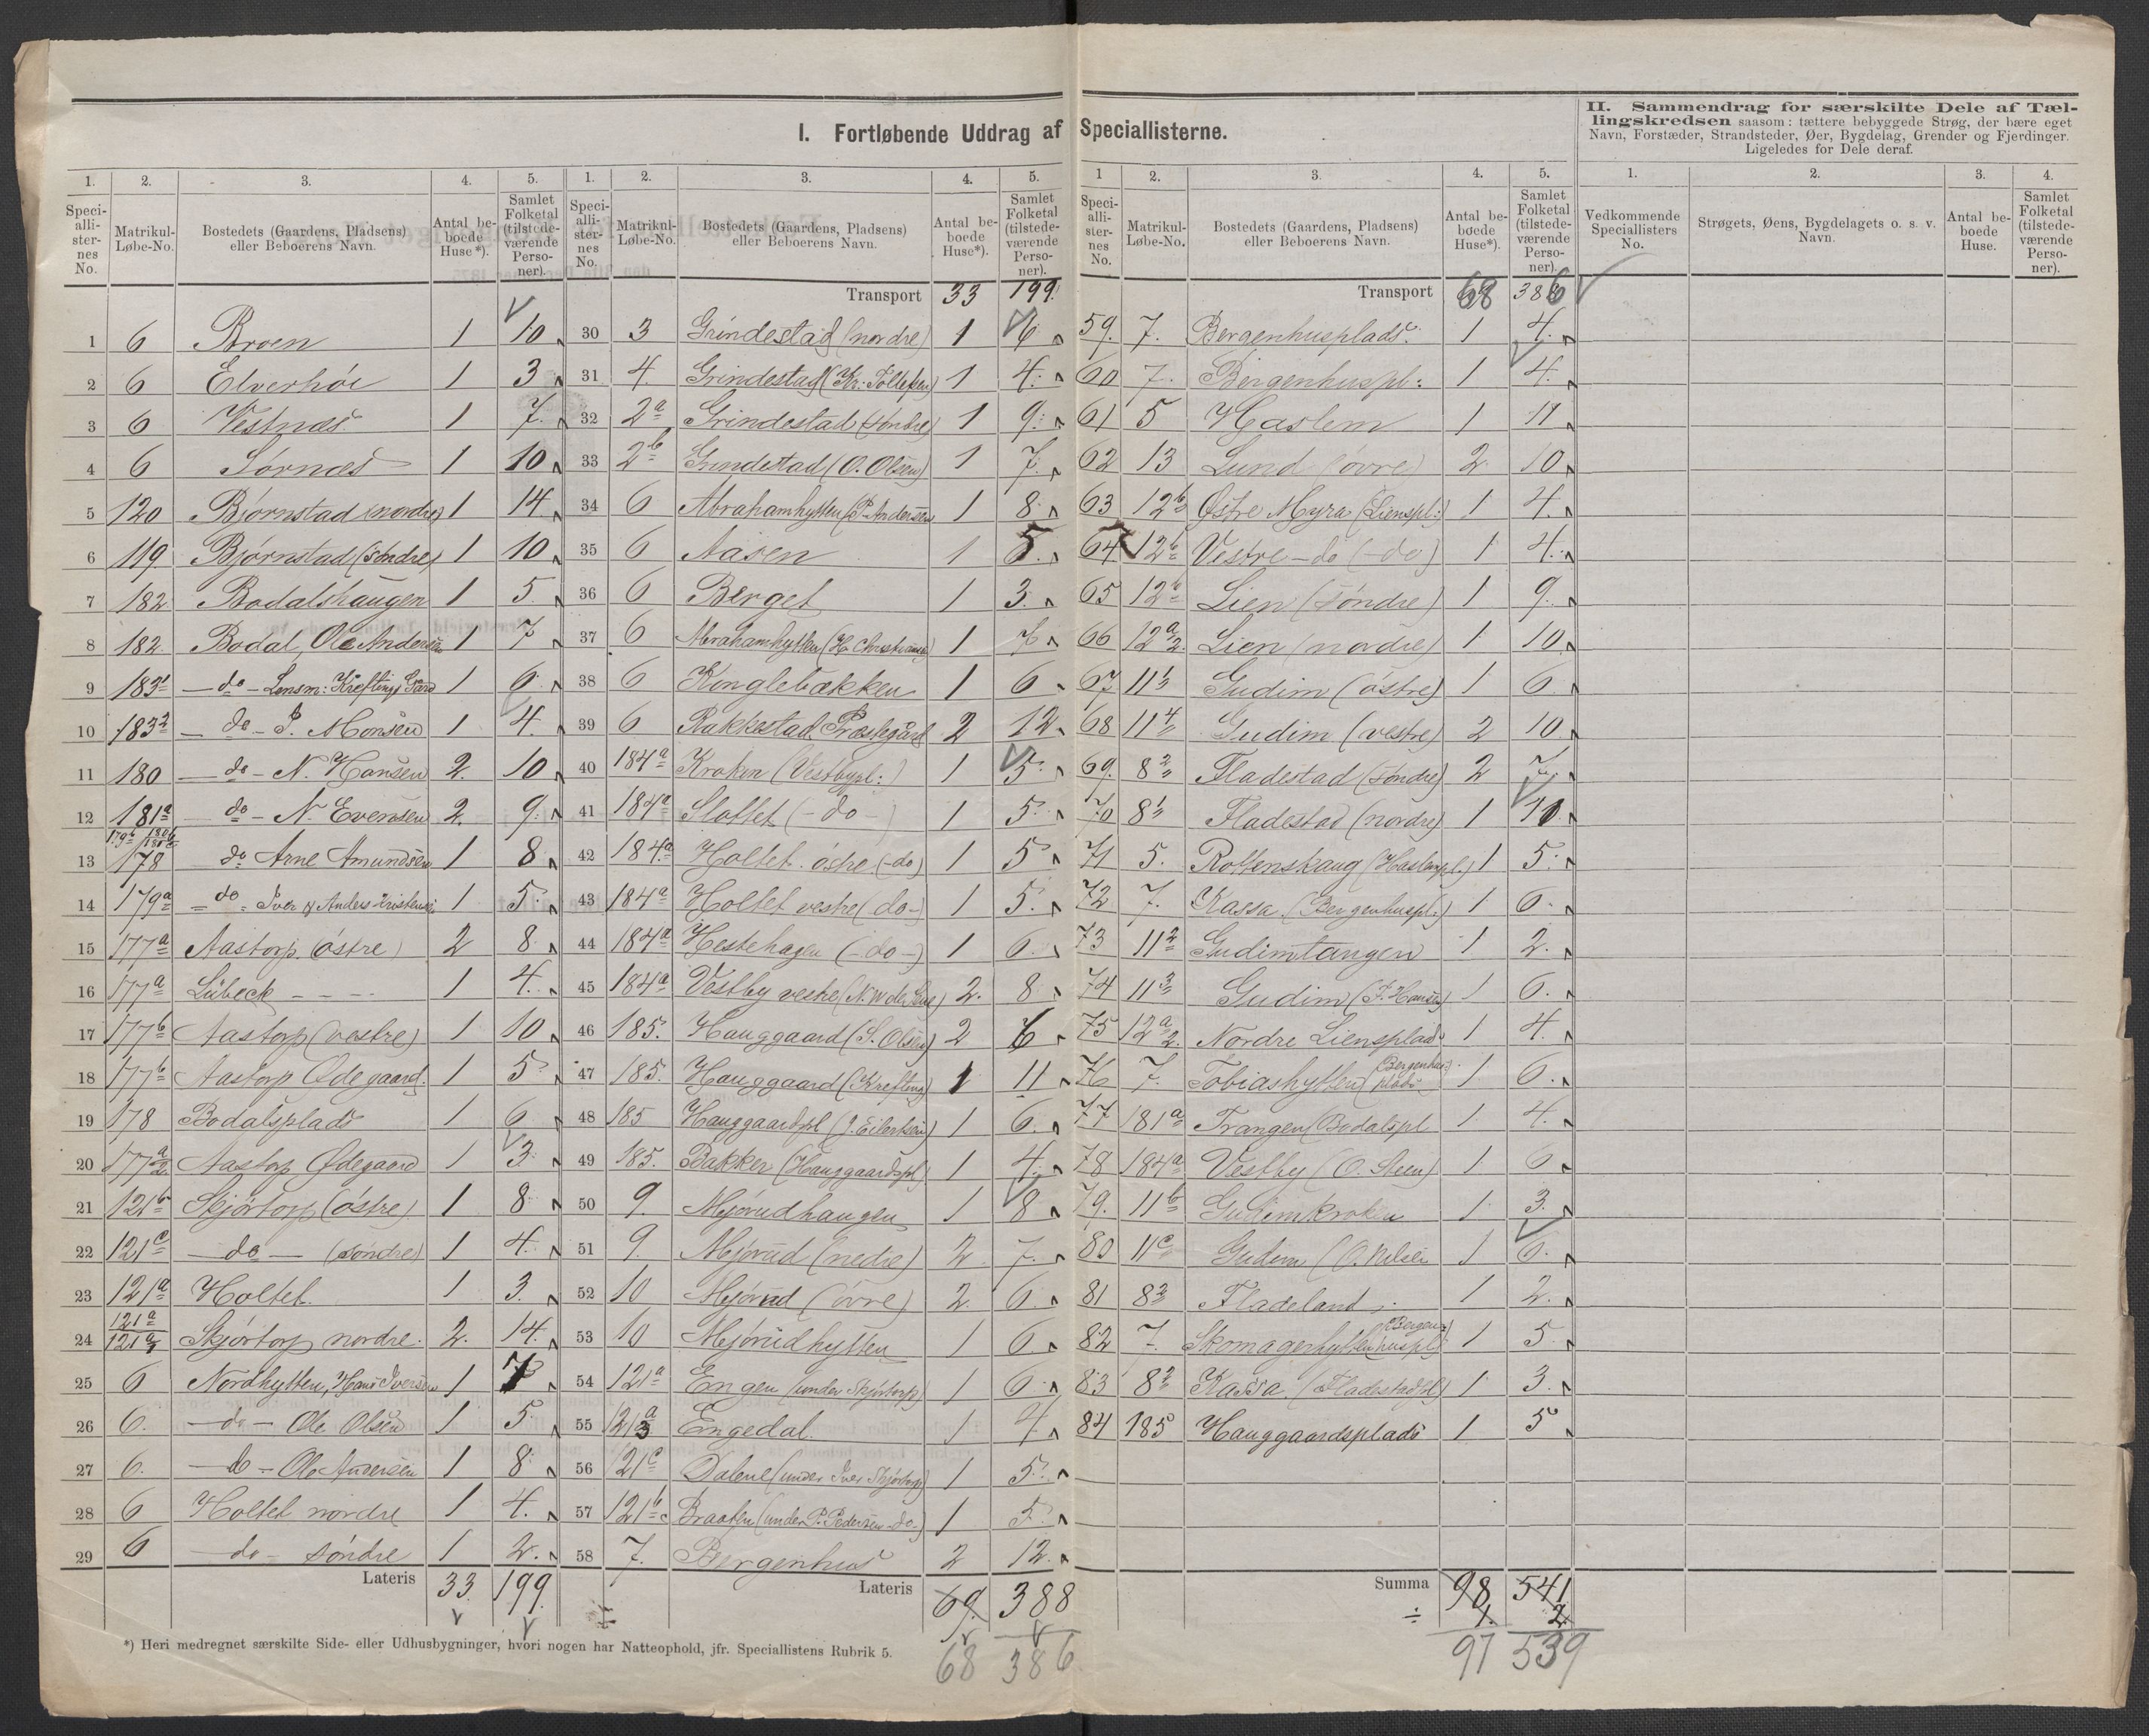 I. Fortløbende Uddrag af Speciallisterne.
II. Sammendrag for særskilte Dele af Tæl-
lingskredsen saasom: tættere bebyggede Strøg, der bære eget
Navn, Forstæder, Strandsteder, Øer, Bygdelag, Grender og Fjerdinger.
Ligeledes for Dele deraf.
1. 2. 3. 4. 5.
Speci-alli-ster-nes No. Matrikul-Løbe-No. Bostedets (Gaardens, Pladsens) eller Beboerens Navn. Antal be-boede Huse*). Samlet Folketal (tilstede-værende Perso-ner).
1 6 Broen 1 10
2 6 Elverhöi 1 3
3 6 Vestnæs 1 7.
4 6 Sørnæs 1 10
5 120 Bjørnstad (nordre) 1 14
6 119. Bjørnstad (søndre) 1 10
7 182 Bodalshaugen 1 5.
8 182. Bodal, Ole Andersen 1 7
9 183¹ - do - Lensm: Kreftings Gård 1 6
10 183² - do - P. Monsen 1 4.
11 180 - do - N. Hansen 2. 10
12 181a do - N. Evensen 2. 9.
13 178 do Arne Amundsen 1 8
14 179a - do - Iver & Anders Kristensen 1 5.
15 177a Aastorp (østre) 2 8
16 177a Lübeck - - - 1 4.
17 177b Aastorp (vestre) 1 10
18 177b Aastorp Ødegaard. 1 5
19 178 Bodalsplads 1 6
20 177a2 Aastorp Ødegaard 1 3
21 121b Skjørtorp (østre) 1 8
22 121c - do - (søndre) 1 4.
23 121a Holtet. 1 3.
24 121a 121a3 Skjørtorp nordre. 2. 14.
25 6 Nordhytten, Hans Iversen 1 7
26 6. - do - Ole Olsen 1 5
27 6. - do - Ole Andersen 1 8
28 6 Holtet nordre 1 4.
29 6 - do - søndre 1 2.
Lateris 33. 199.
1. 2. 3. 4. 5.
Speci-alli-ster-nes No. Matrikul-Løbe-No. Bostedets (Gaardens, Pladsens) eller Beboerens Navn. Antal be-boede Huse*). Samlet Folketal (tilstede-værende Perso-ner).
Transport 33 199.
30 3 Grindestad (nordre) 1 6
31 4. Grindestad (Kr. Tollefsen) 1 4.
32 2a Grindestad (søndre) 1 9.
33 2b Grindestad (O. Olsen) 1 7.
34 6 Abrahamhytten (P. Andersen 1 8
35 6 Aasen 1 5.
36 6 Berget 1 3.
37 6 Abrahamhytten (H. Christiansen) 1 7
38 6 Konglebækken 1 6
39 6 Rakkestad Præstegård 2 12
40 184a Kroken (Vestbypl:) 1 5
41 184a Slottet (- do -) 1 5
42 184.a Holtet østre (- do) 1 5
43 184a Holtet vestre (do -) 1 5.
44 184a Hestehagen (- do -) 1 6
45 184a Vestby vestre (N. W. der Lin) 2. 8
46 185. Hauggaard (S. Olsen) 2 6
47 185. Hauggaard (Krefting) 1 11
48 185 Hauggaardspl (J. Eilertsen) 1 6.
49 185. Bakker (Hauggaardspl.) 1 4.
50 9. Mjørudhaugen 1 8
51 9. Mjørud (nedre) 2 7.
52 10 Mjørud (øvre) 2. 6.
53 10 Mjørudhytten 1 6
54 121a Engen (under Skjørtorp) 1 6
55 121a3 Engedal. 1 4
56 121c Dalene (under Iver Skjørtorp) 1 5.
57 121b Braaten (under P. Pedersen - do -) 1 5
58 7. Bergenhus 2 12.
Lateris 69. 388
68 386
1 2. 3. 4. 5.
Speci-alli-ster-nes No. Matrikul-Løbe-No. Bostedets (Gaardens, Pladsens) eller Beboerens Navn. Antal be-boede Huse*). Samlet Folketal (tilstede-værende Perso-ner).
Transport 68 386
59. 7. Bergenhusplads. 1 4.
60 7. Bergenhuspl: 1 4.
61 5 Haslem 1 11
62 13 Lund (øvre) 2 10
63 12b Østre Myra (Lienspl:) 1 4.
64 12b Vestre - do (- do) 1 4.
65 12b Lien (søndre) 1 9.
66 12a2. Lien (nordre) 1 10
67 11¹ Gudim (østre) 1 6
68 11⁴ Gudim (vestre) 2 10
69. 8² Fladestad (søndre) 2 7.
70 8¹ Fladestad (nordre) 1 11
71 5. Rottenskaug (Haslempl.) 1 5
72 7. Kassa (Bergenhuspl:) 1 6
73 11² Gudimtangen 1 2.
74 11³ Gudim (J. Hansen) 1 6.
75 12a2. Nordre Liensplads 1 4.
76 7. Tobiashytten (Bergenhus: plads 1 6.
77 181a Trangen (Bodalspl 1 4.
78 184a Vestby (O. Steen) 1 6
79. 11b Gudimkroken 1 3.
80 11c Gudim (O. Nilsen 1 6.
81 8² Fladeland 1 2.
82 7. Skomagerhytten (Bergenhuspl) 1 5
83 8² Kassa (Fladestadpl) 1 3.
84 185 Hauggaardsplads 1 5
Summa 98 541
÷ 1. 2
97 539
1. 2. 3. 4.
Vedkommende Speciallisters No. Strøgets, Øens, Bygdelagets o. s. v. Navn. Antal be-boede Huse. Samlet Folketal (tilstede-værende Perso-ner).
*) Heri medregnet særskilte Side- eller Udhusbygninger, hvori nogen har Natteophold, jfr. Speciallistens Rubrik 5.